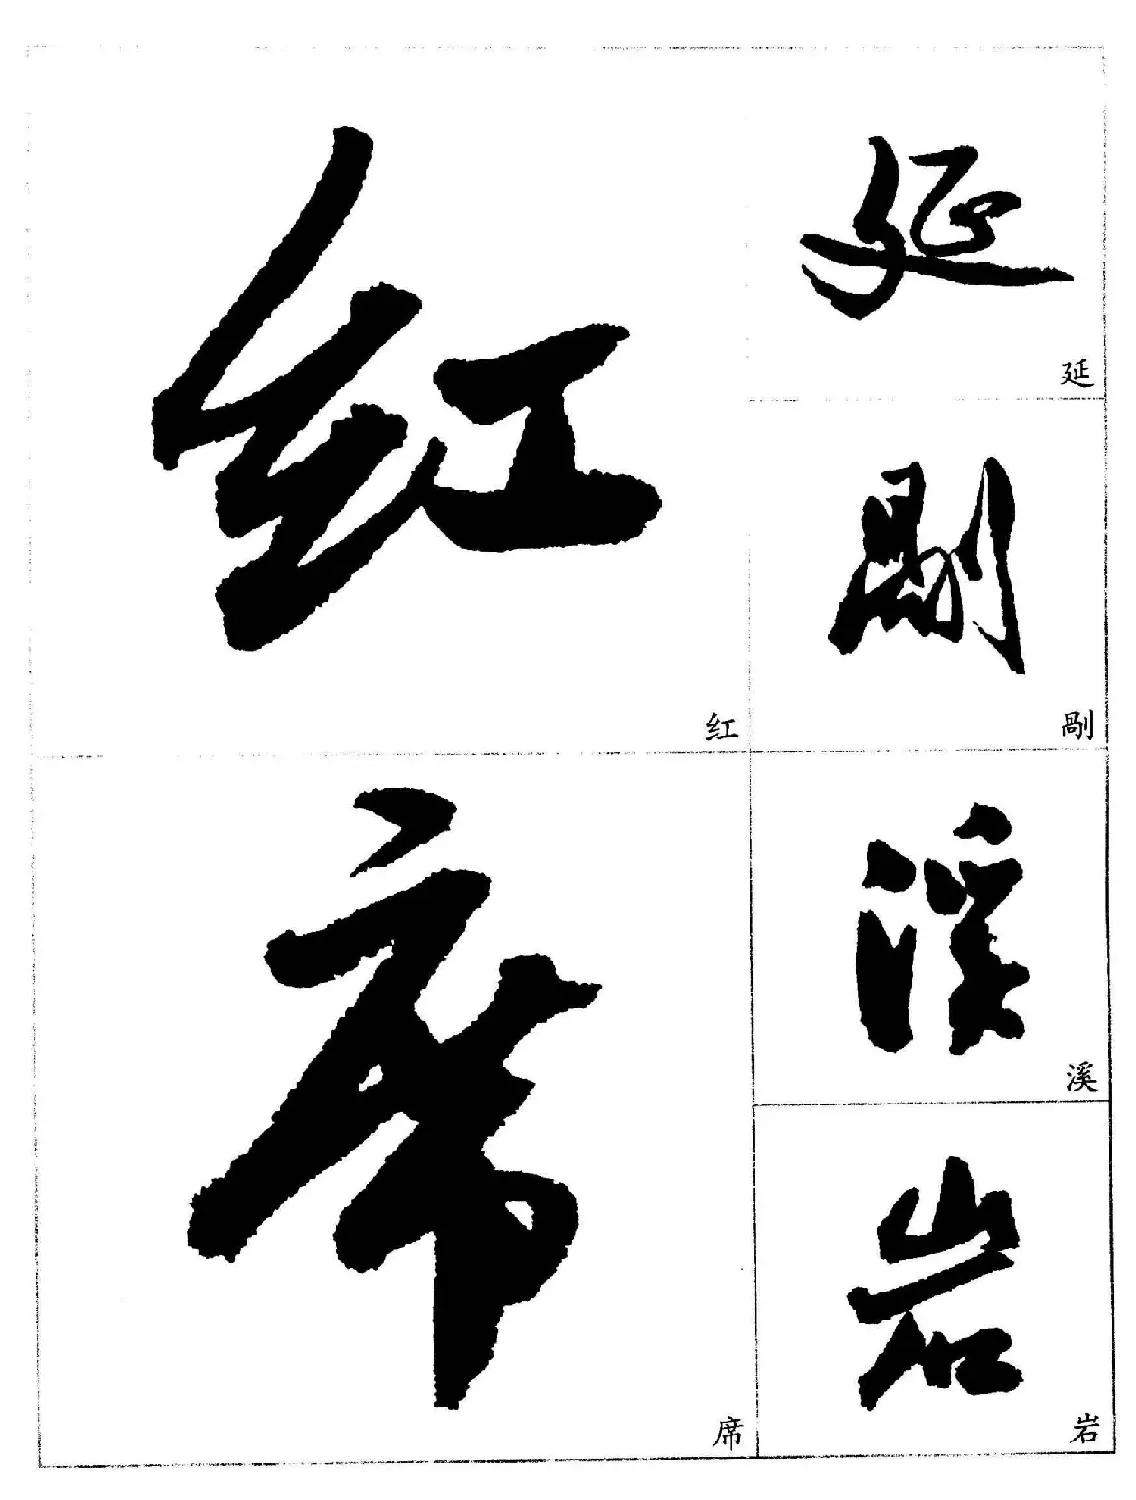 延
延
溪
溪
岩
岩
红
红
席
席